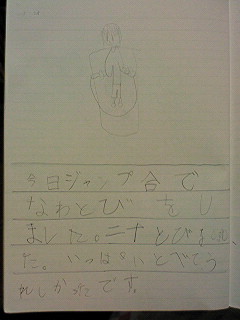 今日ジャンプ台で
なわとび をし
ました。二十とびまし
た。いっぱいとべてう
れしかったです。